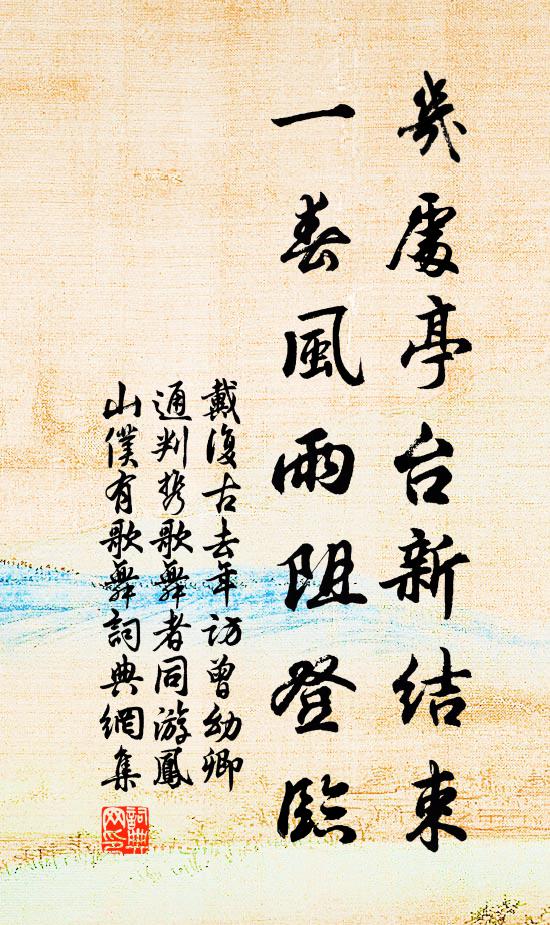 幾處亭台新結束
一春風雨阻登臨
戴復古去年訪曾幼卿
通判攜歌舞者同游鳳
山僕有歌舞詞典網集
詞典
网